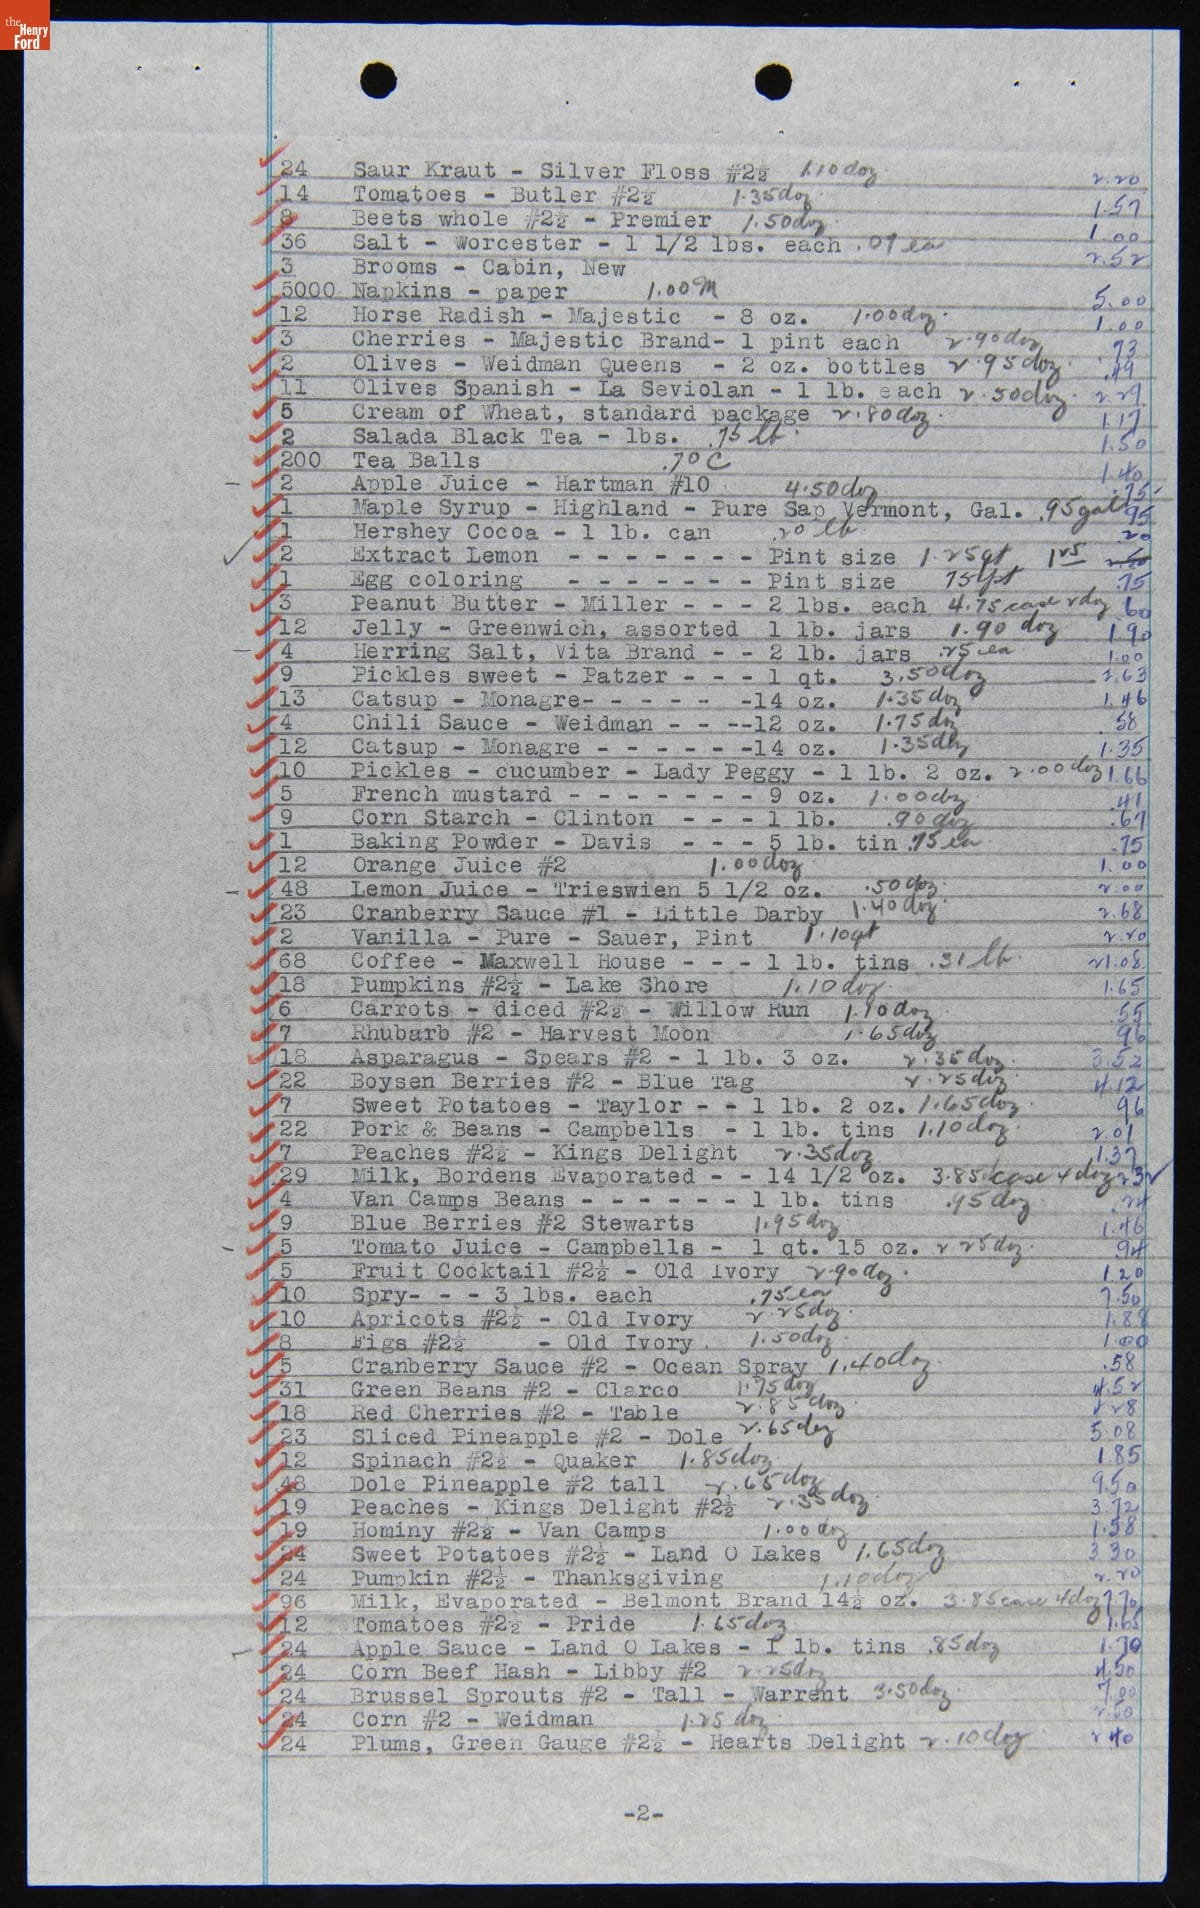 the Henry Ford
24 Saur Kraut - Silver Floss #2½ 1.10 doz 2.20
14 Tomatoes - Butler #2½ 1.35 doz 1.57
8 Beets whole #2½ - Premier 1.50 doz 1.00
36 Salt - Worcester - 1 1/2 lbs. each .07 ea 2.52
3 Brooms - Cabin, New
5000 Napkins - paper 1.00 M 5.00
12 Horse Radish - Majestic - 8 oz. 1.00 doz. 1.00
3 Cherries - Majestic Brand- 1 pint each 2.90 doz .73
2 Olives - Weidman Queens - 2 oz. bottles 2.95 doz. .49
11 Olives Spanish - La Seviolan - 1 lb. each 2.50 doz. 2.29
5 Cream of Wheat, standard package 2.80 doz. 1.17
2 Salada Black Tea - lbs. .75 lb. 1.50
200 Tea Balls .70 C 1.40
2 Apple Juice - Hartman #10 4.50 doz .75
1 Maple Syrup - Highland - Pure Sap Vermont, Gal. .95 gal 95
1 Hershey Cocoa - 1 lb. can .20 lb. .20
2 Extract Lemon - - - - - - - Pint size 1.25 qt 1 25
1 Egg coloring - - - - - - - Pint size 75 pt .75
3 Peanut Butter - Miller - - - 2 lbs. each 4.75 case 2 doz .60
12 Jelly - Greenwich, assorted 1 lb. jars 1.90 doz 1.90
4 Herring Salt, Vita Brand - - 2 lb. jars .25 ea 1.00
9 Pickles sweet - Patzer - - - 1 qt. 3.50 doz 2.63
13 Catsup - Monagre- - - - - -14 oz. 1.35 doz 1.46
4 Chili Sauce - Weidman - - --12 oz. 1.75 doz .58
12 Catsup - Monagre - - - - - -14 oz. 1.35 doz 1.35
10 Pickles - cucumber - Lady Peggy - 1 lb. 2 oz. 2.00 doz 1.66
5 French mustard - - - - - - - 9 oz. 1.00 doz .41
9 Corn Starch - Clinton - - - 1 lb. .90 doz .67
1 Baking Powder - Davis - - - 5 lb. tin .75 ea .75
12 Orange Juice #2 1.00 doz 1.00
48 Lemon Juice - Trieswien 5 1/2 oz. .50 doz. 2.00
23 Cranberry Sauce #1 - Little Darby 1.40 doz. 2.68
2 Vanilla - Pure - Sauer, Pint 1.10 qt 2.20
68 Coffee - Maxwell House - - - 1 lb. tins .31 lb. 21.08
18 Pumpkins #2½ - Lake Shore 1.10 doz 1.65
6 Carrots - diced #2½ - Willow Run 1.10 doz 55
7 Rhubarb #2 - Harvest Moon 1.65 doz 96
18 Asparagus - Spears #2 - 1 lb. 3 oz. 2.35 doz. 3.52
22 Boysen Berries #2 - Blue Tag 2.25 doz 4.12
7 Sweet Potatoes - Taylor - - 1 lb. 2 oz. 1.65 doz. 96
22 Pork & Beans - Campbells - 1 lb. tins 1.10 doz. 2.01
7 Peaches #2½ - Kings Delight 2.35 doz 1.37
29 Milk, Bordens Evaporated - - 14 1/2 oz. 3.85 case 4 doz 2.32
4 Van Camps Beans - - - - - - 1 lb. tins .95 doz
9 Blue Berries #2 Stewarts 1.95 doz 1.46
5 Tomato Juice - Campbells - 1 qt. 15 oz. 2 25 doz. .94
5 Fruit Cocktail #2½ - Old Ivory 2.90 doz. 1.20
10 Spry- - - 3 lbs. each .75 ea 7.50
10 Apricots #2½ - Old Ivory 2.25 doz. 1.88
8 Figs #2½ - Old Ivory 1.50 doz. 1.00
5 Cranberry Sauce #2 - Ocean Spray 1.40 doz. .58
31 Green Beans #2 - Clarco 1.75 doz 4.52
18 Red Cherries #2 - Table 2.85 doz. 4.28
23 Sliced Pineapple #2 - Dole 2.65 doz 5.08
12 Spinach #2½ - Quaker 1.85 doz 1.85
43 Dole Pineapple #2 tall 2.65 doz 9.50
19 Peaches - Kings Delight #2½ 2.35 doz. 3.72
19 Hominy #2½ - Van Camps 1.00 doz 1.58
24 Sweet Potatoes #2½ - Land O Lakes 1.65 doz 3 30
24 Pumpkin #2½ - Thanksgiving 1.10 doz 2.20
96 Milk, Evaporated - Belmont Brand 14½ oz. 3.85 case 4 doz 7.70
12 Tomatoes #2½ - Pride 1.65 doz 1.65
24 Apple Sauce - Land O Lakes - 1 lb. tins .85 doz 1.70
24 Corn Beef Hash - Libby #2 2.25 doz 4.50
24 Brussel Sprouts #2 - Tall - Warrent 3.50 doz. 7.00
24 Corn #2 - Weidman 1.25 doz. 2.50
24 Plums, Green Gauge #2½ - Hearts Delight 2.10 doz 2 40
-2-